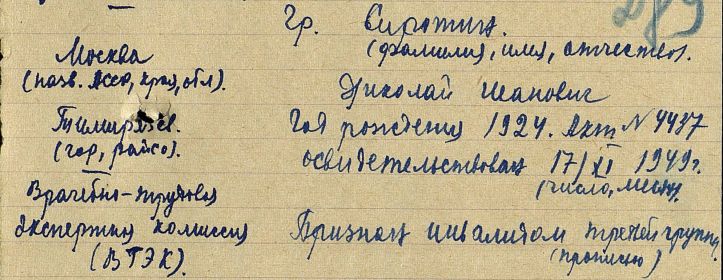 Гр. Сиротин.
(фамилия, имя, отчество).
Николай Иванович
Год рождения 1924. Акт N 4437
освидетельствован 17/XI 1949г.
(число, месяц).
Признан инвалидом третей группы
(прописью)
Москва
(назв. АССР, края, обл).
Тимирязев.
(гор, райсо).
Врачебно-трудовая
экспертная комиссия
(ВТЭК).